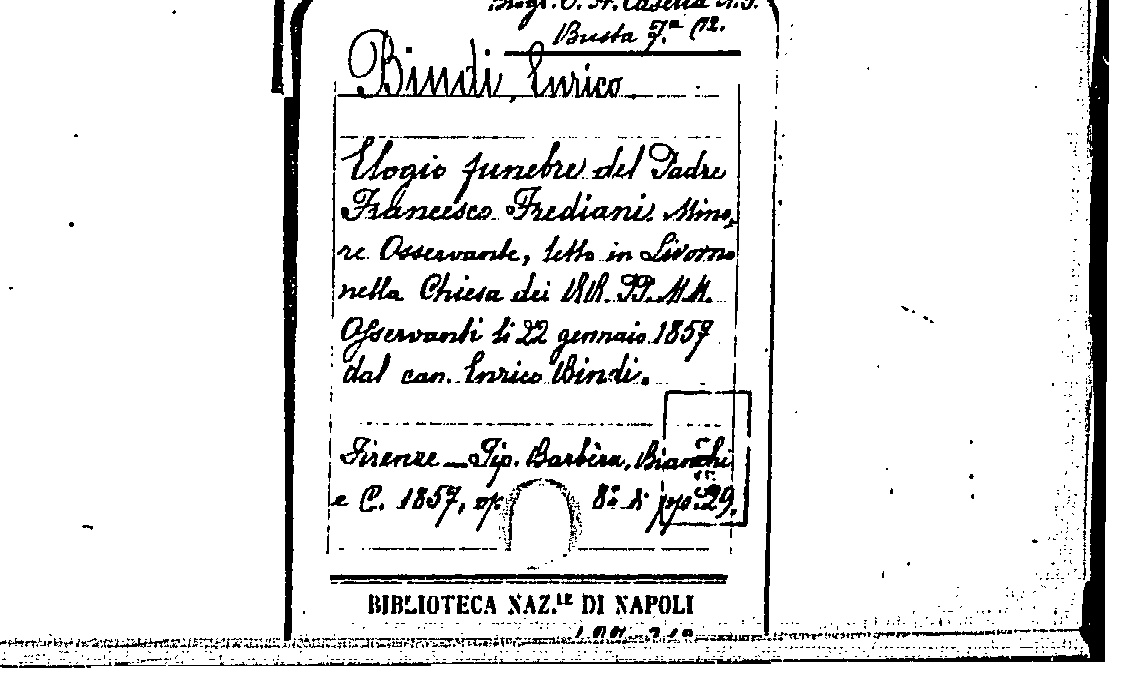 Busta 7.ª (12.
Bindi, Enrico.
Elogio funebre del Padre
Francesco Frediani. Mino,
re Osservante, letto in Livorno
nella Chiesa dei RR. PP. MM.
Osservanti li 22 gennaio 1857
dal can. Enrico Bindi.
Firenze – Tip. Barbèra, Bianchi
e C. 1857, op 8.º di pp. 29.
BIBLIOTECA NAZ.LE DI NAPOLI